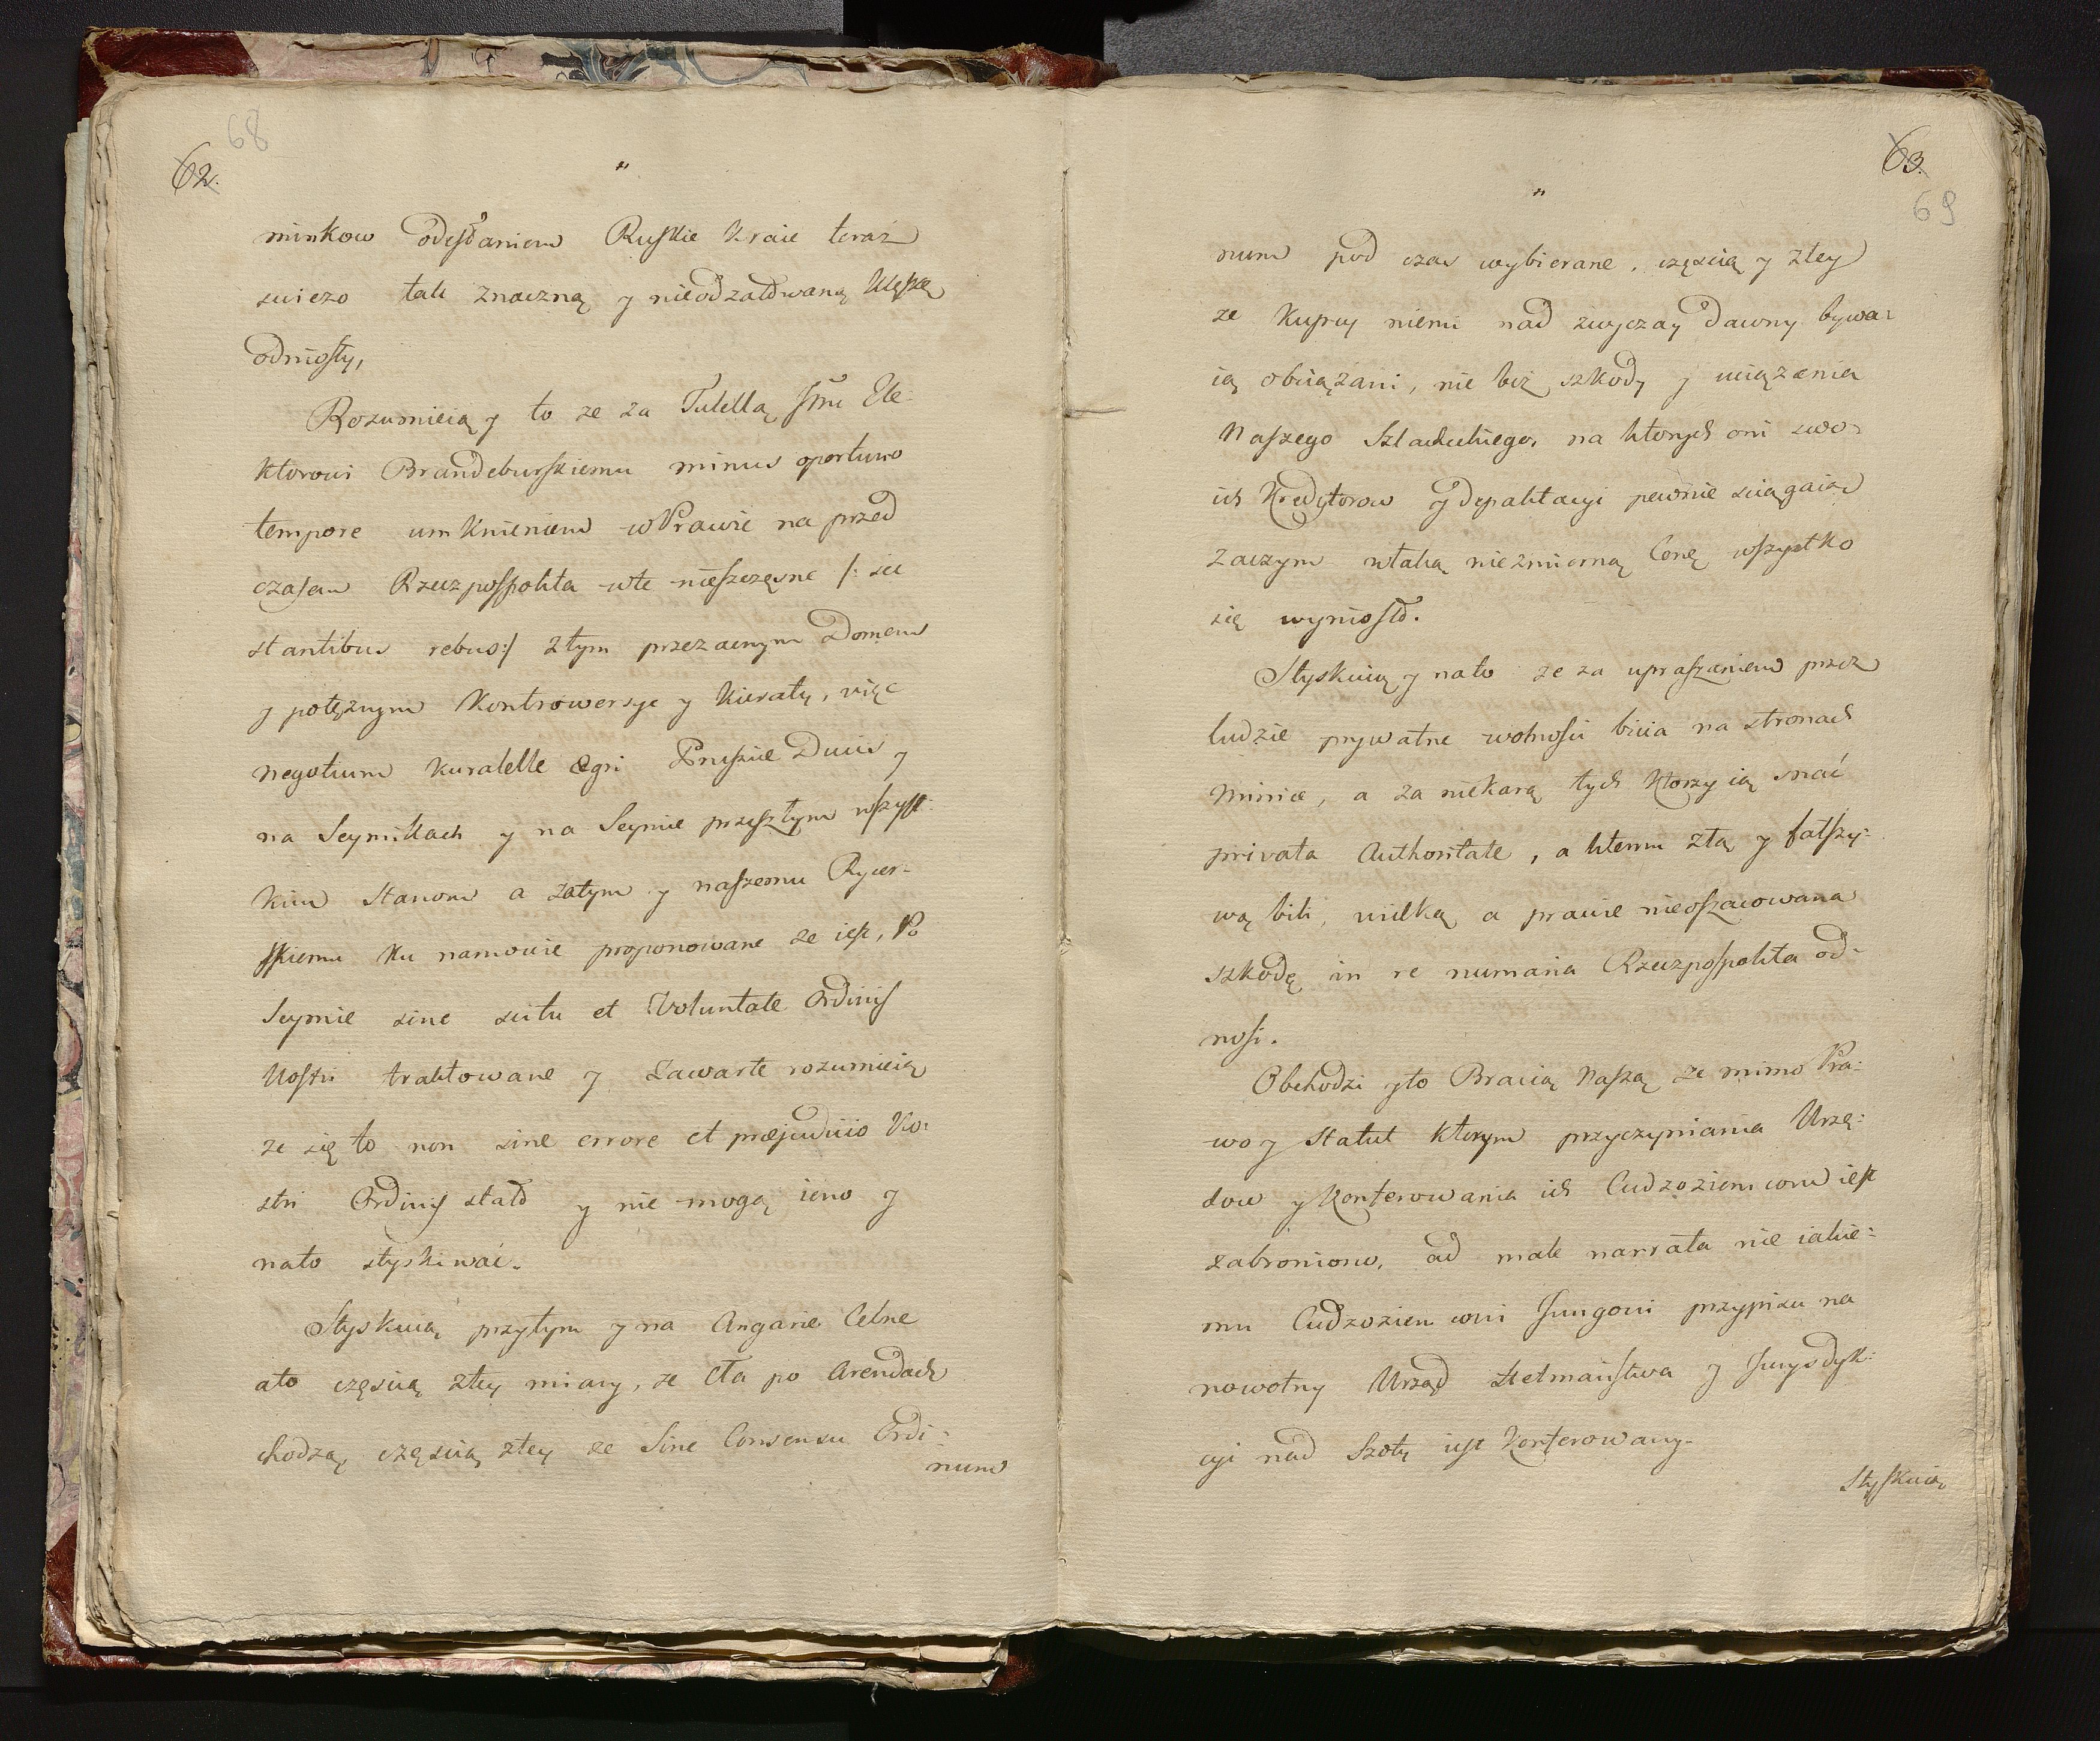 68
62.
"
minkow odesłaniem Ruskie kraie teraz
swiezo tak znaczną y nieodzałowaną klęskę
odniosły,
Rozumieią y to ze za Tutellą Jmu Ele-
ktorowi Brandeburskiemu minus oportuno
tempore umknieniem w Prawie na przed
czasem Rzeczpospolita wte nieszczęsne /: sic
stantibus rebus :/ ztym przezacnym Domem
y potęznym Kontrowersye y kieraty, więc
negotium kuratelle ægri Prussiæ Ducis y
na Seymikach y na Seymie przeszłym wszyst-
kim Stanom a zatym y naszemu Rycer-
skiemu ku namowie proponowane ze iest, Po
Seymie sine scitu et Voluntate Ordinis
Nostri traktowane y zawarte rozumieią
ze się to non sine errore et præjudicio No-
stri Ordinis stało y nie mogą ieno y
nato styskiwać.
Styskuią przytym y na Angarie Celne
ato częscią ztey miary, ze Cła po Arendach
chodzą, częscią ztey ze Sine Consensu Ordi-
num
63.
69
"
num pod czas wybierane, częscią y ztey
ze kupcy niemi nad zwyczay dawny bywa-
ią obciązani, nie bez szkody y uciązenia
Naszego Szlacheckiego, na ktorych oni swo-
ich Kredytorow y depaktacyi pewnie sciągaią
zaczym wtaką niezmierną Cenę wszystko
się wyniosło.
Styskuią y nato ze za upraszaniem przez
ludzie prywatne wolnosci bicia na stronach
Minice, a za niekarą tych ktorzy ią snać
privata Authoritate, a ktemu złą y fałszy-
wą bili, wielką a prawie nieoszacowana
szkodę in re numaria Rzeczpospolita od-
nosi.
Obchodzi yto Bracią Naszą ze mimo Pra-
wo y Statut ktorym przyczyniania Urzę-
dow y Konferowania ich Cudzoziemcom iest
zabroniono, ad male narrata nie iakie-
mu Cudzoziemcowi Jungowi przypisu na
nowotny Urząd Hetmaństwa y Jurysdyk-
cyi nad Szoty iest Konferowany.
Styskuią